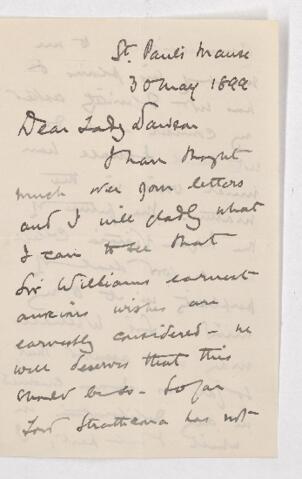 St. Paul's Manse
30 May 1899
Dear Lady Dawson
I have thought
much over your letters
and I will gladly what
I can to see that
Sir Williams earnest
anxious wishes are
earnestly considered – he
well deserves that this
should be so – So far
Lord Strathcona has not